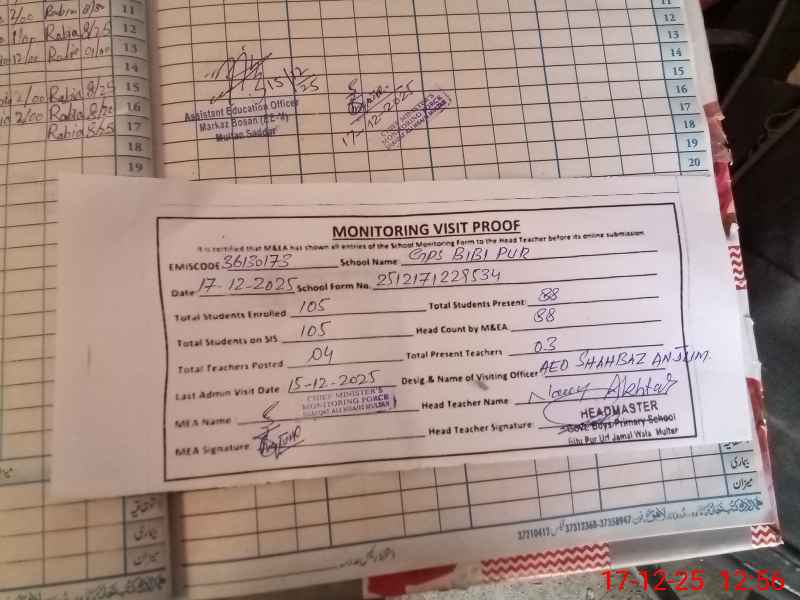 2/00 Rabia 8/50 11
1/00 Rabia 8/25 12
12/00 Rabia 13
14
2/00 Rabia 8/25 15
2/00 Rabia 8/20 16
Rabia 8/25 17
18
19
11
12
13
14
15
16
17
18
19
20
15/12/25
Assistant Education Officer
Markaz Bosan (EE-M)
Multan Saddar
17-12-2025
CHIEF MINISTER'S
MONITORING FORCE
MONITORING VISIT PROOF
It is certified that M&EA has shown all entries of the School Monitoring Form to the Head Teacher before its online submission.
EMISCODE 36130173 School Name GPS BIBI PUR
Date 17-12-2025 School Form No. 2512171229534
Total Students Enrolled 105 Total Students Present 88
Total Students on SIS 105 Head Count by M&EA 88
Total Teachers Posted 04 Total Present Teachers 03
Last Admin Visit Date 15-12-2025 Desig.& Name of Visiting Officer AEO SHAHBAZ ANJUM.
MEA Name CHIEF MINISTER'S MONITORING FORCE Head Teacher Name Akhtar
MEA Signature Head Teacher Signature:
HEADMASTER
Govt. Boys Primary School
Bibi Pur Urf Jamal Wala Multan
بیماری
میزان
بیماری
میزان
37310413 37312368-37358947
17-12-25 12:56